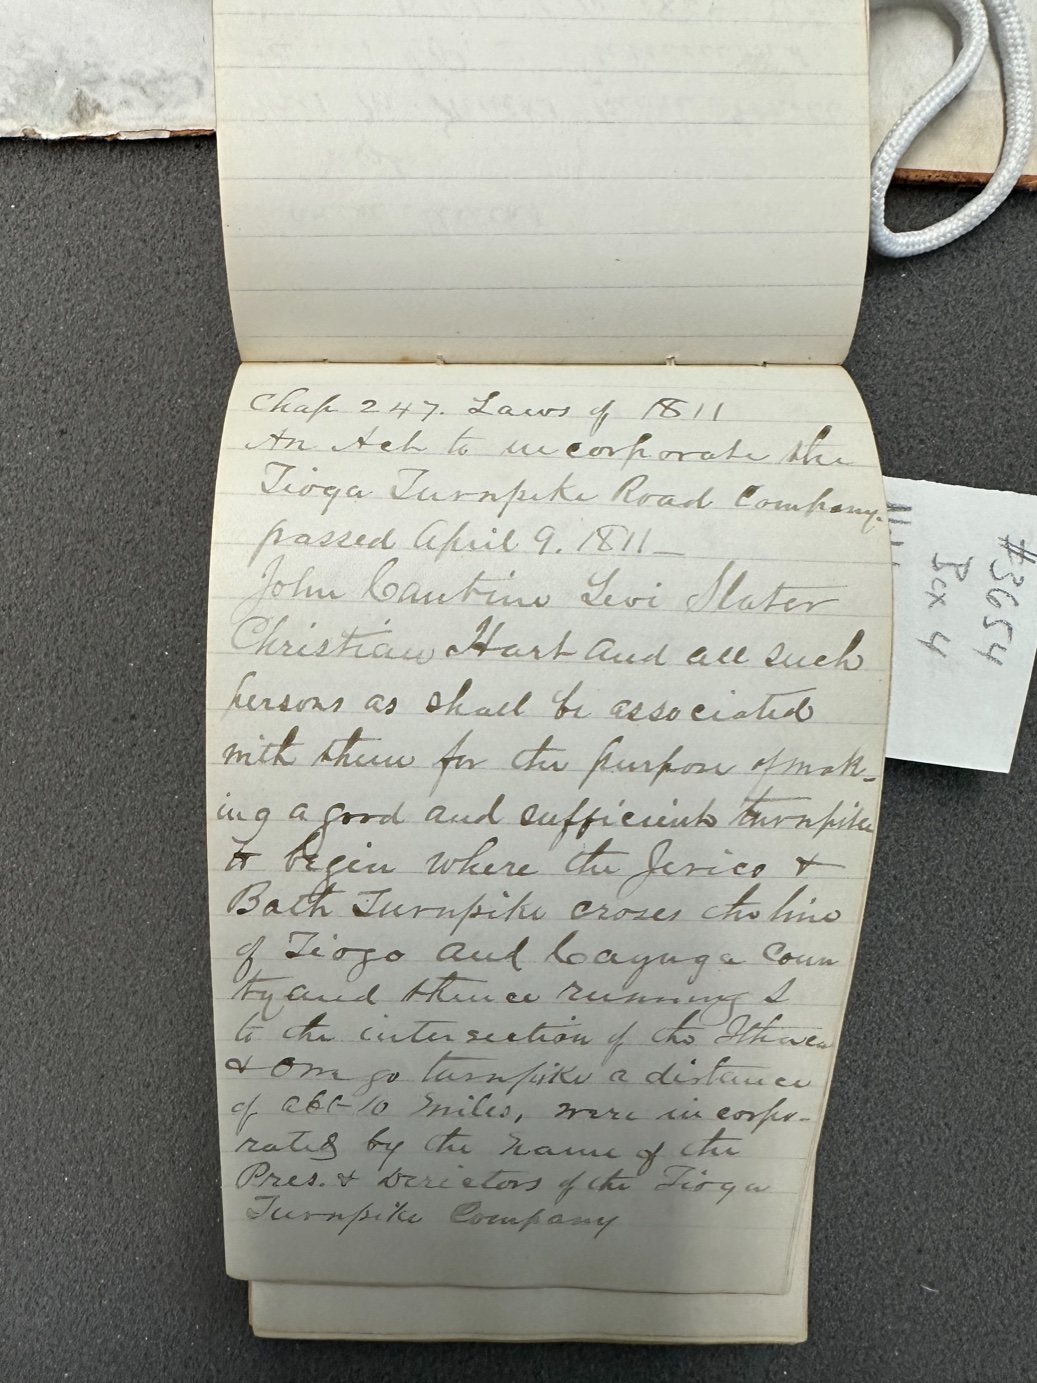 Chap 247. Laws of 1811
An Act to incorporate the
Tioga Turnpike Road Company.
passed April 9. 1811—
John Cantine Levi Slater
Christian Hart and all such
persons as shall be associated
with them for the purpose of mak-
ing a good and sufficient turnpike
to begin where the Jerico &
Bath Turnpike croses the line
of Tioga and Cayuga Coun
ty and thence running S
to the intersection of the Ithaca
& Owego turnpike a distance
of abt 10 miles, were incorpo-
rated by the name of the
Pres. & Directors of the Tioga
Turnpike Company
#3654
Box 4